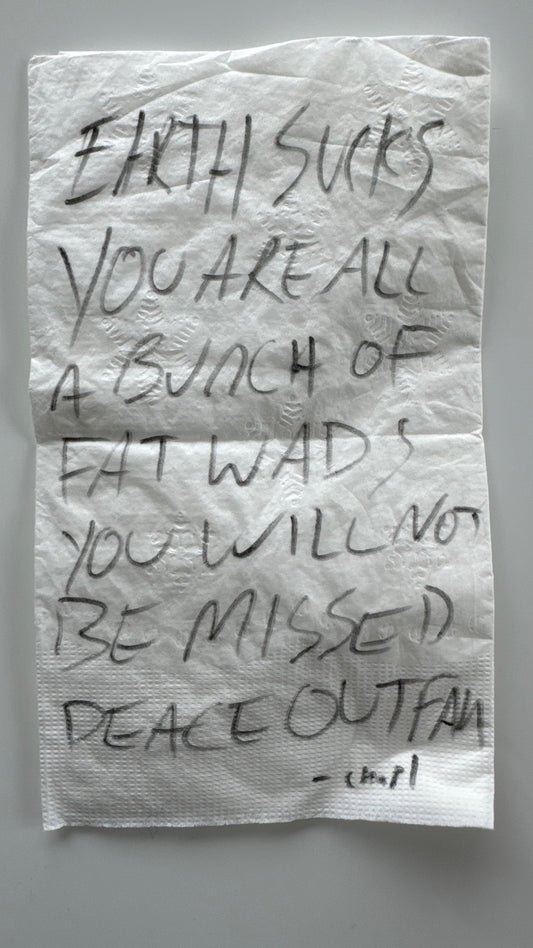 EARTH SUCKS
YOU ARE ALL
A BUNCH OF
FAT WADS
YOU WILL NOT
BE MISSED
PEACE OUT FAM
-